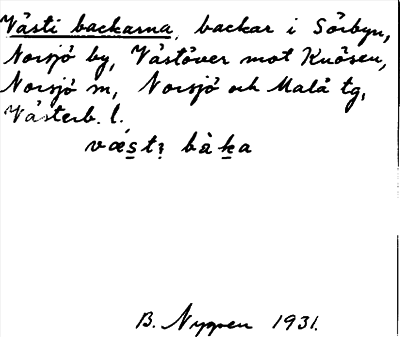 Västi backarna, backar i Sörbyn,
Norsjö by, Västöver mot Knösen,
Norsjö m, Norsjö och Malå tg,
Västerb. l.
væst bàka
B. Nygren 1931.